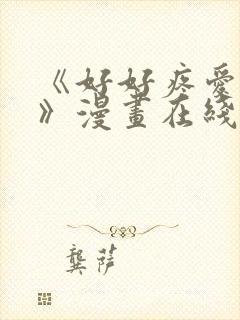 《好好疼愛
》漫畫在綫
龔萨